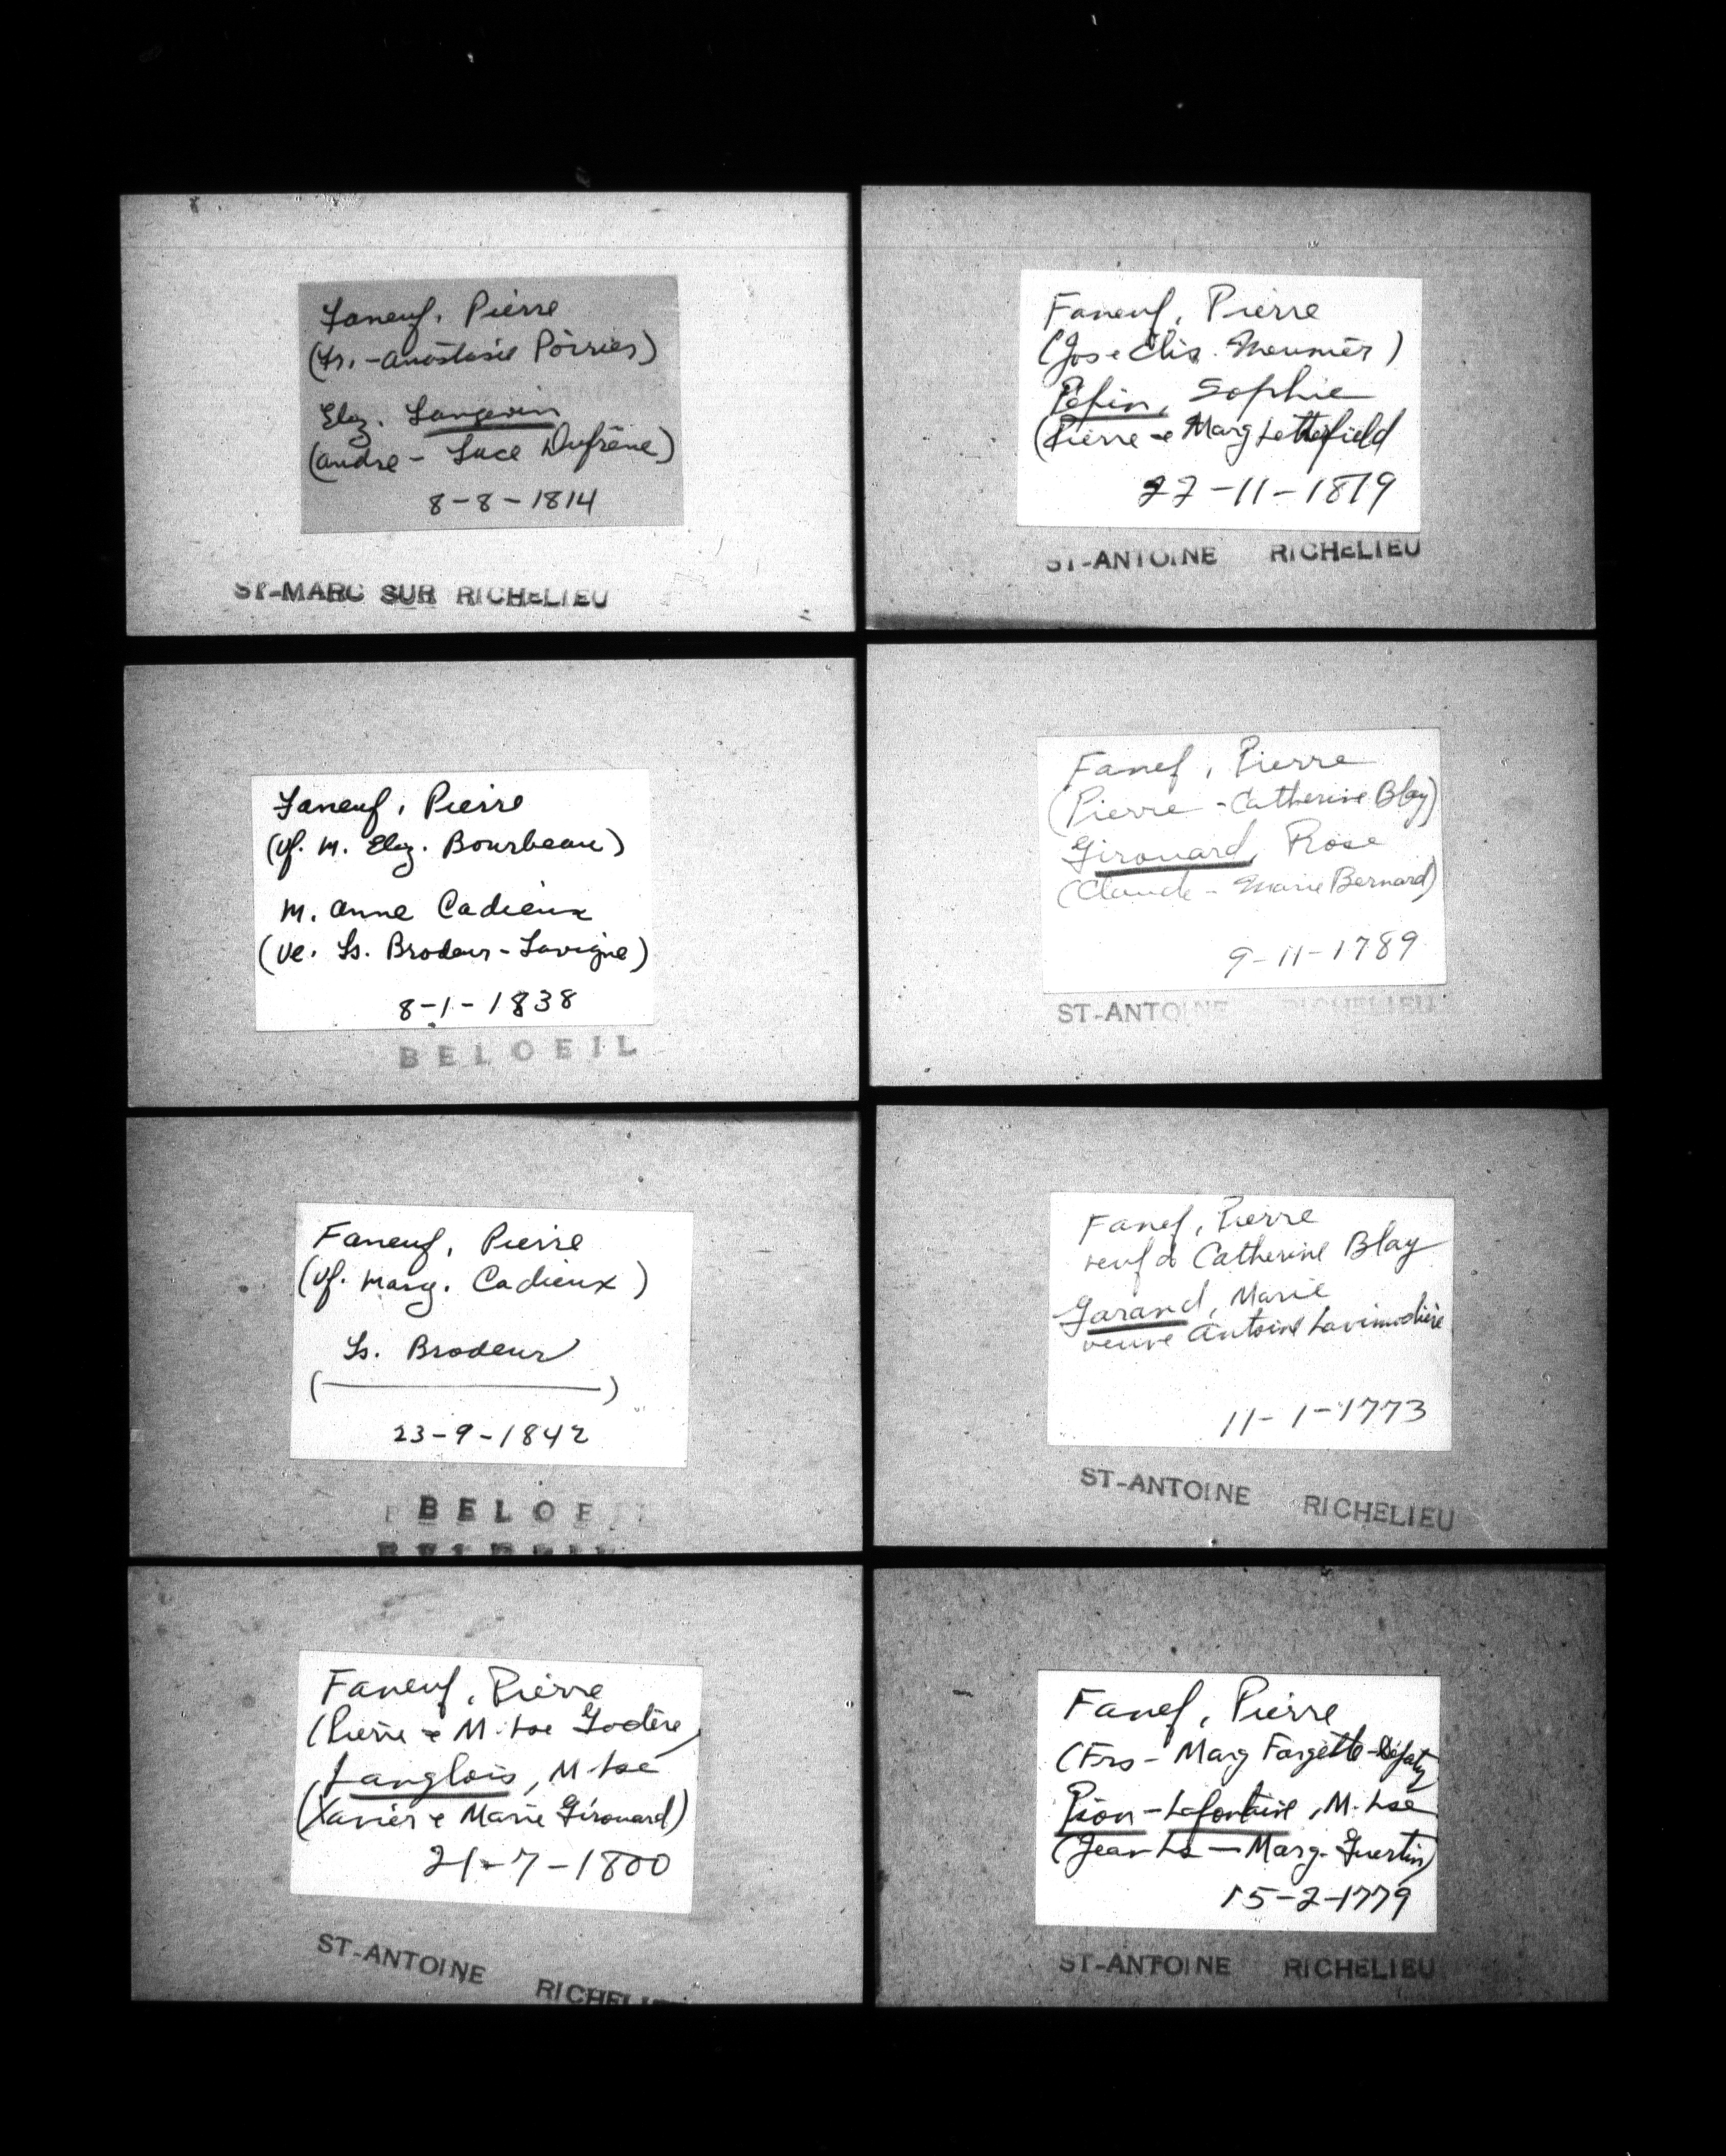 Faneuf, Pierre
(Frs. - Anastasie Poirier)
Elz. Langevin
(André - Luce Dufrêne)
8-8-1814
ST-MARC SUR RICHELIEU
Faneuf, Pierre
(Jos e Elis. Meunier)
Pépin, Sophie
(Pierre e Marg Lettlefield
22-11-1819
ST-ANTOINE RICHELIEU
Faneuf, Pierre
(Vf. M. Elz. Bourbeau)
M. Anne Cadieux
(Ve. Ls. Brodeur-Lavigne)
8-1-1838
BELOEIL
Fanef, Pierre
(Pierre - Catherine Blay)
Girouard, Rose
(Claude - Marie Bernard)
9-11-1789
ST-ANTOINE RICHELIEU
Faneuf, Pierre
(Vf. Marg. Cadieux)
Ls. Brodeur
( )
23-9-1842
BELOEIL
BELOEIL
Fanef, Pierre
veuf d Catherine Blay
Garand, Marie
veuve Antoine Lavimodière
11-1-1773
ST-ANTOINE RICHELIEU
Faneuf, Pierre
(Pierre e M. Lse Godère,
Langlois, M. Lse
(Xavier e Marie Girouard)
21-7-1800
ST-ANTOINE RICHELIEU
Fanef, Pierre
(Frs - Marg Forgette-
Pion-Lafontaine, M. Lse
(Jean Ls - Marg. Guertin)
15-2-1779
ST-ANTOINE RICHELIEU